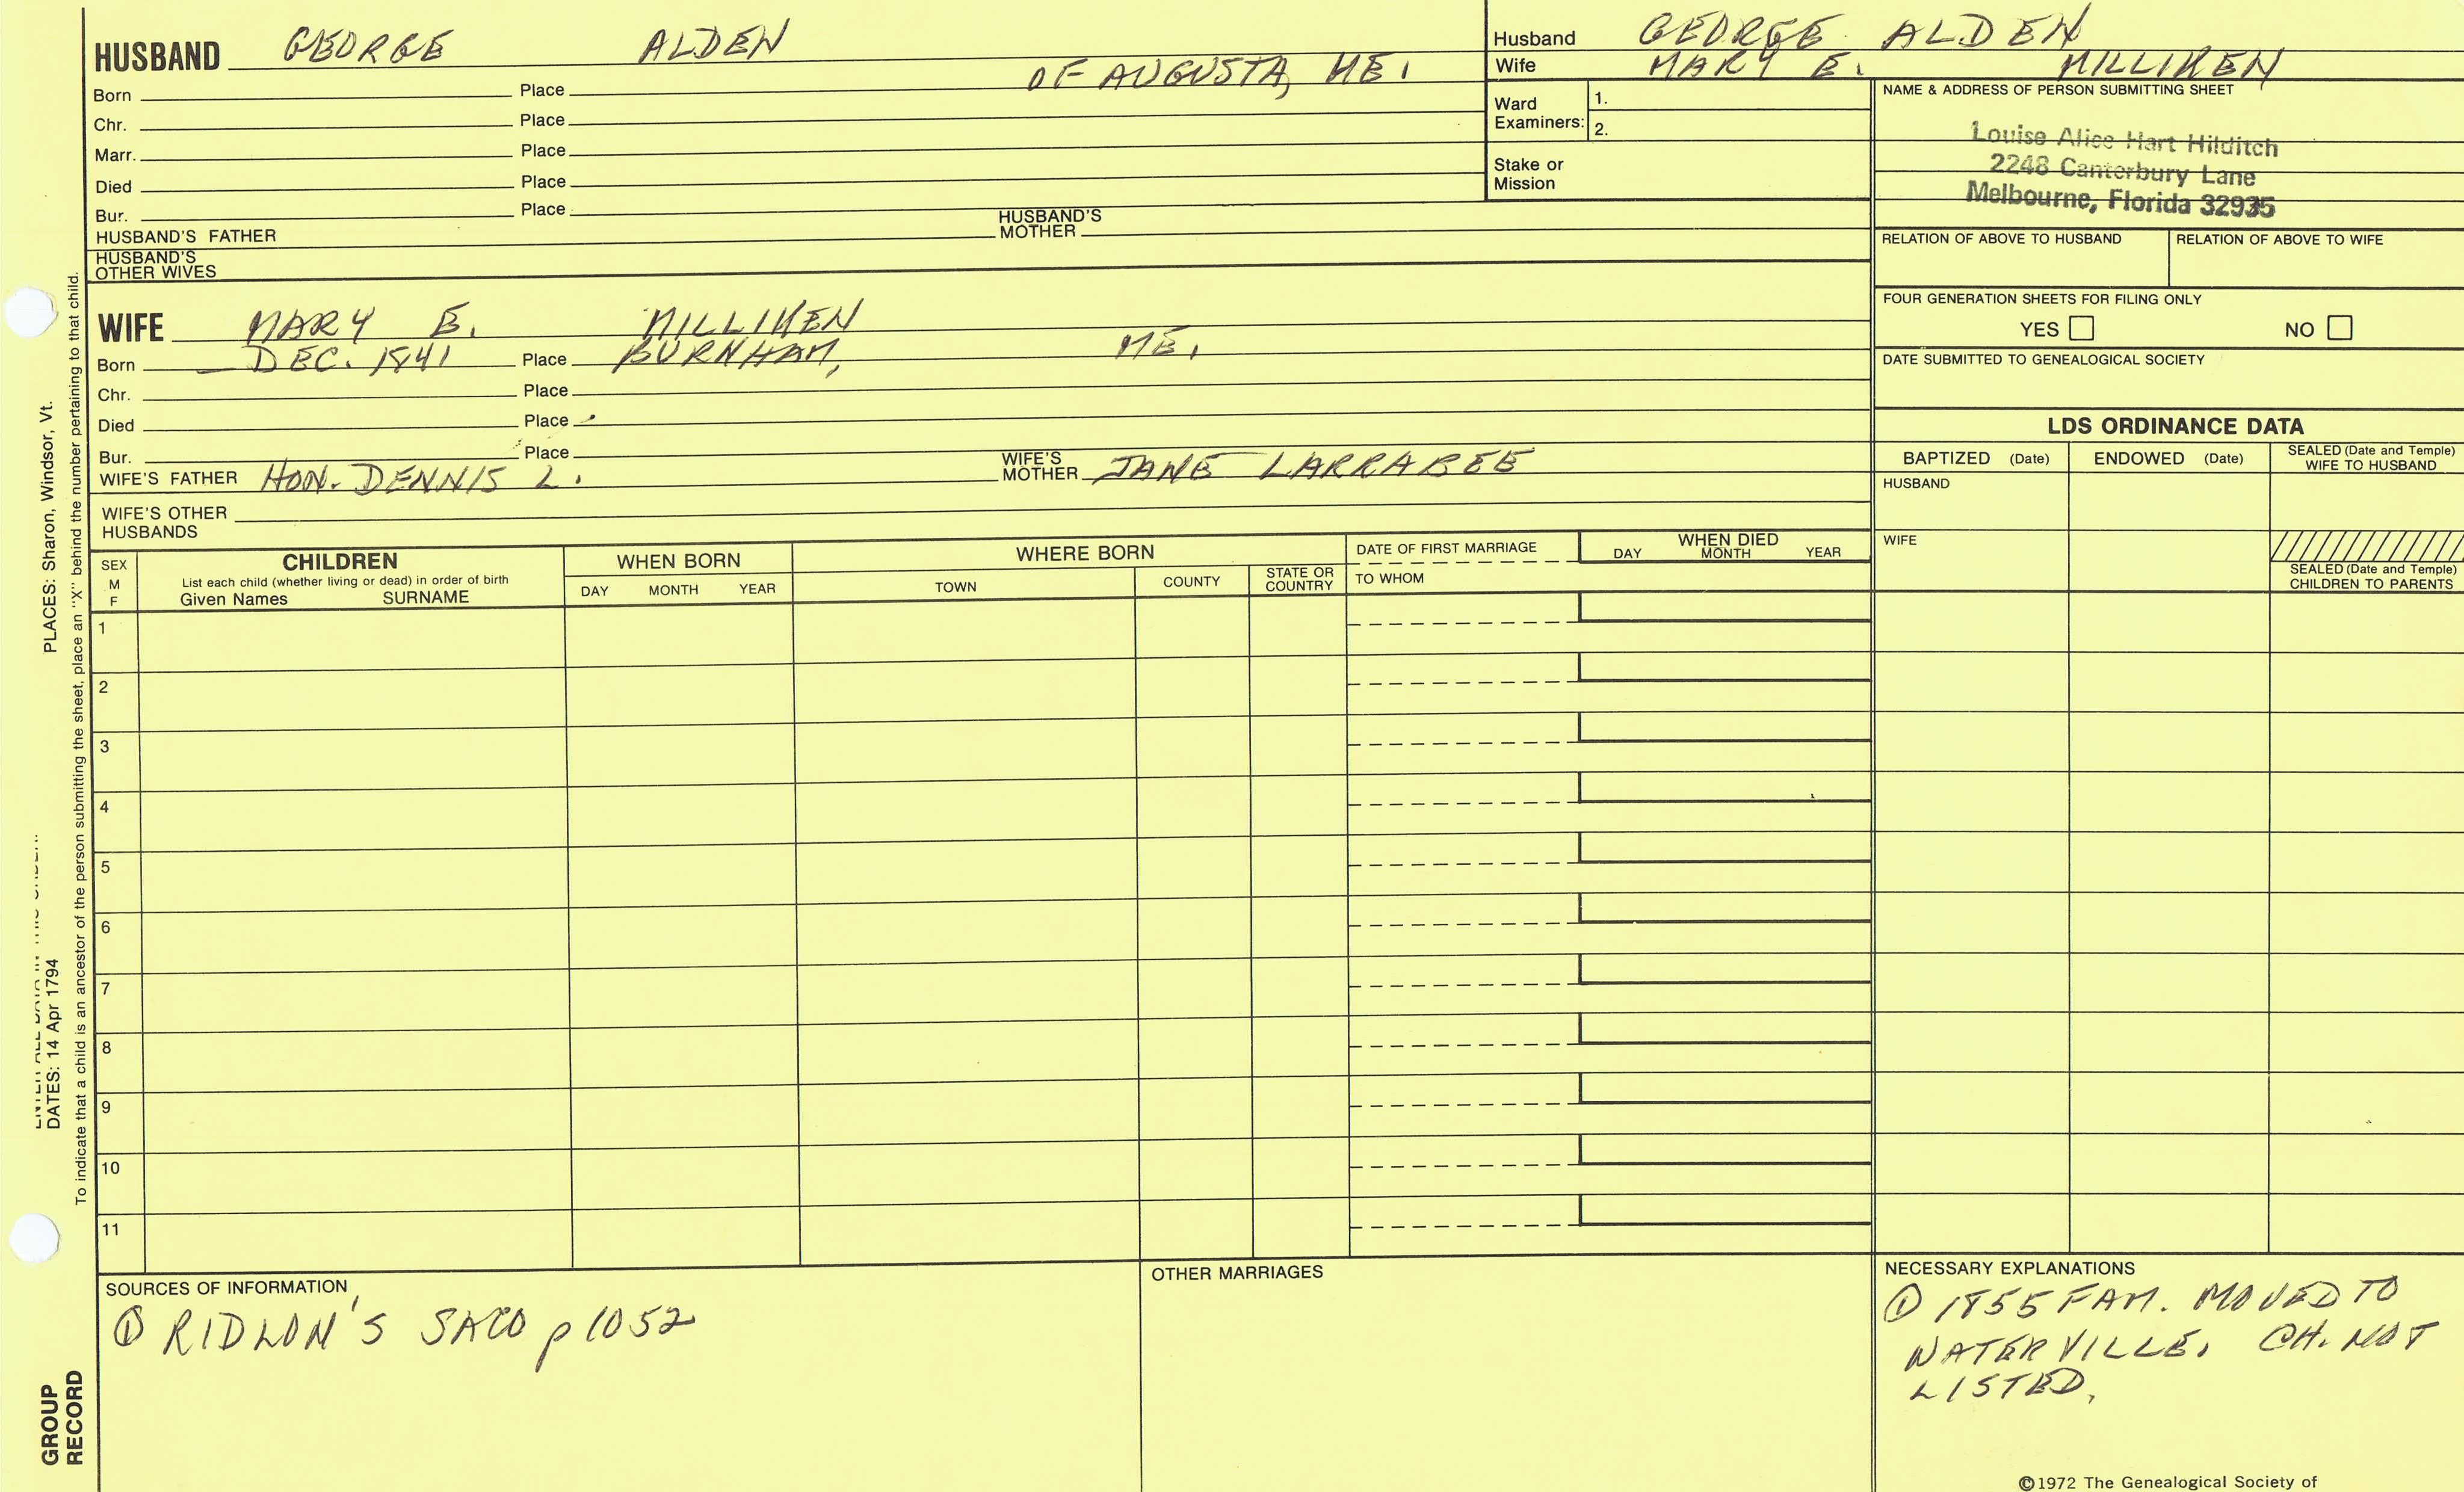 HUSBAND GEORGE ALDEN
OF AUGUSTA, ME.
Born Place
Chr. Place
Marr. Place
Died Place
Bur. Place
HUSBAND'S FATHER HUSBAND'S MOTHER
HUSBAND'S OTHER WIVES
Husband GEORGE ALDEN
Wife MARY E. MILLIKEN
Ward Examiners: 1.
2.
Stake or Mission
NAME & ADDRESS OF PERSON SUBMITTING SHEET
Louise Alice Hart Hilditch
2248 Canterbury Lane
Melbourne, Florida 32935
RELATION OF ABOVE TO HUSBAND RELATION OF ABOVE TO WIFE
FOUR GENERATION SHEETS FOR FILING ONLY
YES NO
DATE SUBMITTED TO GENEALOGICAL SOCIETY
WIFE MARY E. MILLIKEN
Born DEC. 1841 Place BURNHAM, ME.
Chr. Place
Died Place
Bur. Place
WIFE'S FATHER HON. DENNIS L. WIFE'S MOTHER JANE LARRABEE
WIFE'S OTHER HUSBANDS
LDS ORDINANCE DATA
BAPTIZED (Date) ENDOWED (Date) SEALED (Date and Temple) WIFE TO HUSBAND
HUSBAND
WIFE
SEALED (Date and Temple) CHILDREN TO PARENTS
SEX M F
CHILDREN
List each child (whether living or dead) in order of birth
Given Names SURNAME
WHEN BORN
DAY MONTH YEAR
WHERE BORN
TOWN COUNTY STATE OR COUNTRY
DATE OF FIRST MARRIAGE
TO WHOM
WHEN DIED
DAY MONTH YEAR
1
2
3
4
5
6
7
8
9
10
11
SOURCES OF INFORMATION
① RIDLON'S SACO p 1052
OTHER MARRIAGES
NECESSARY EXPLANATIONS
① 1855 FAM. MOVED TO
WATERVILLE. CH. NOT
LISTED.
©1972 The Genealogical Society of
PLACES: Sharon, Windsor, Vt.
DATES: 14 Apr 1794
To indicate that a child is an ancestor of the person submitting the sheet, place an "X" behind the number pertaining to that child.
GROUP
RECORD